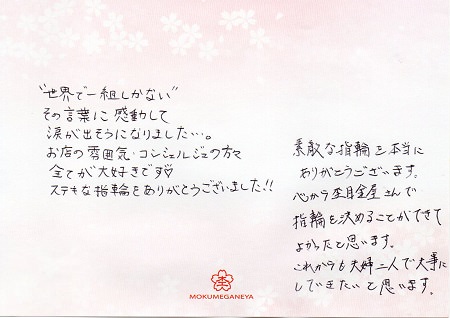 "世界で一組しかない"
その言葉に感動して
涙が出そうになりました…。
お店の雰囲気・コンシェルジュの方々
全てが大好きです♡
ステキな指輪をありがとうございました!!
素敵な指輪を本当に
ありがとうございます。
心から杢目金屋さんで
指輪を決めることができて
よかったと思います。
これからも夫婦二人で大事に
していきたいと思います。
杢
MOKUMEGANEYA